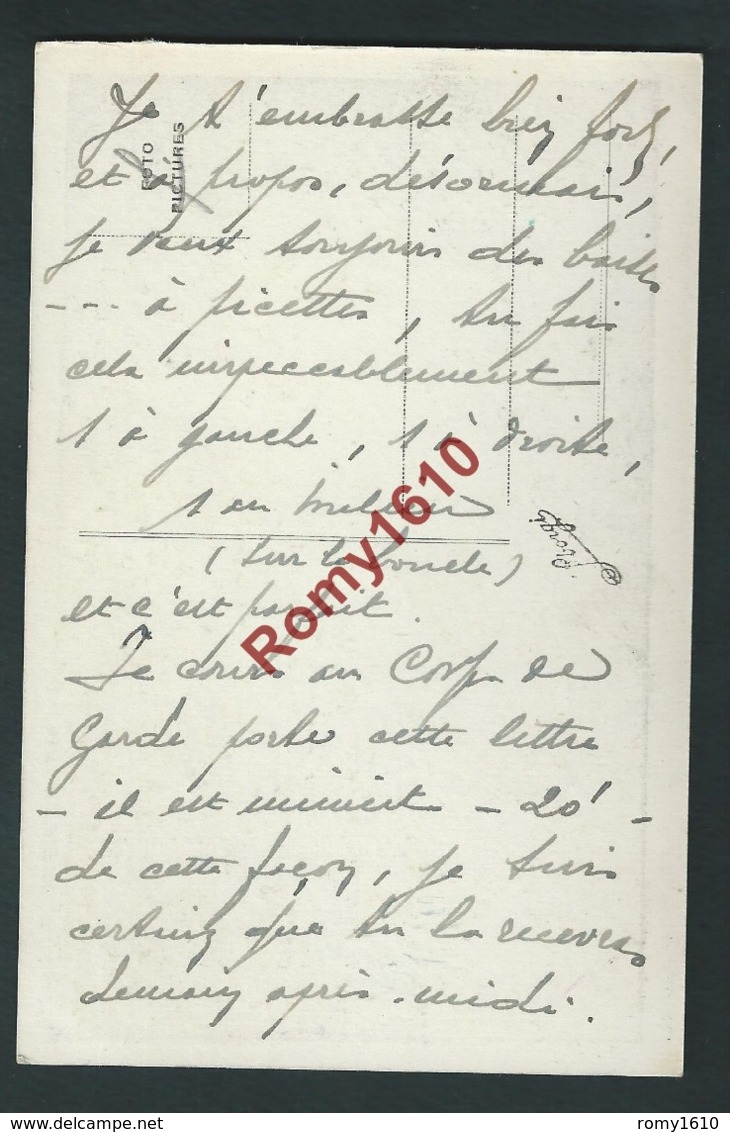 Je t'embrasse bien fort,
et à propos, désormais,
je veux toujours des baises
--- à picettes, tu fais
cela impeccablement
1 à gauche, 1 à droite,
1 au milieu
(sur la bouche)
et c'est parfait.
Je cours au Corps de
Garde porter cette lettre
- il est minuit - 20' -
de cette façon, je suis
certain que tu la recevras
demain après-midi.
FOTO
PICTURES
Romy1610
delcampe.net
romy1610